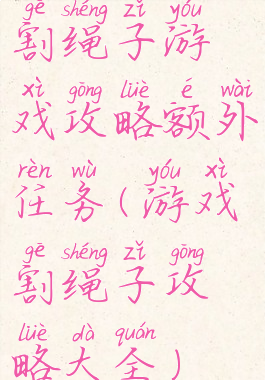 gē shéng zǐ yóu
割绳子游
xì gōng lüè é wài
戏攻略额外
rèn wù yóu xì
任务(游戏
gē shéng zǐ gōng
割绳子攻
lüè dà quán
略大全)